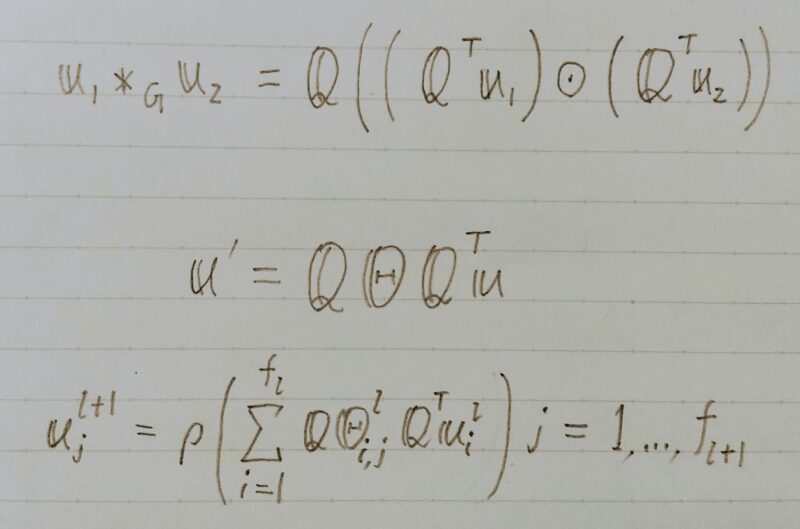 𝕦₁ *_G 𝕦₂ = ℚ((ℚᵀ𝕦₁) ⊙ (ℚᵀ𝕦₂))
𝕦′ = ℚ Θ ℚᵀ 𝕦
𝕦_j^{l+1} = ρ(∑_{i=1}^{f_l} ℚΘ_{i,j}^l ℚᵀ𝕦_i^l) j = 1,…, f_{l+1}